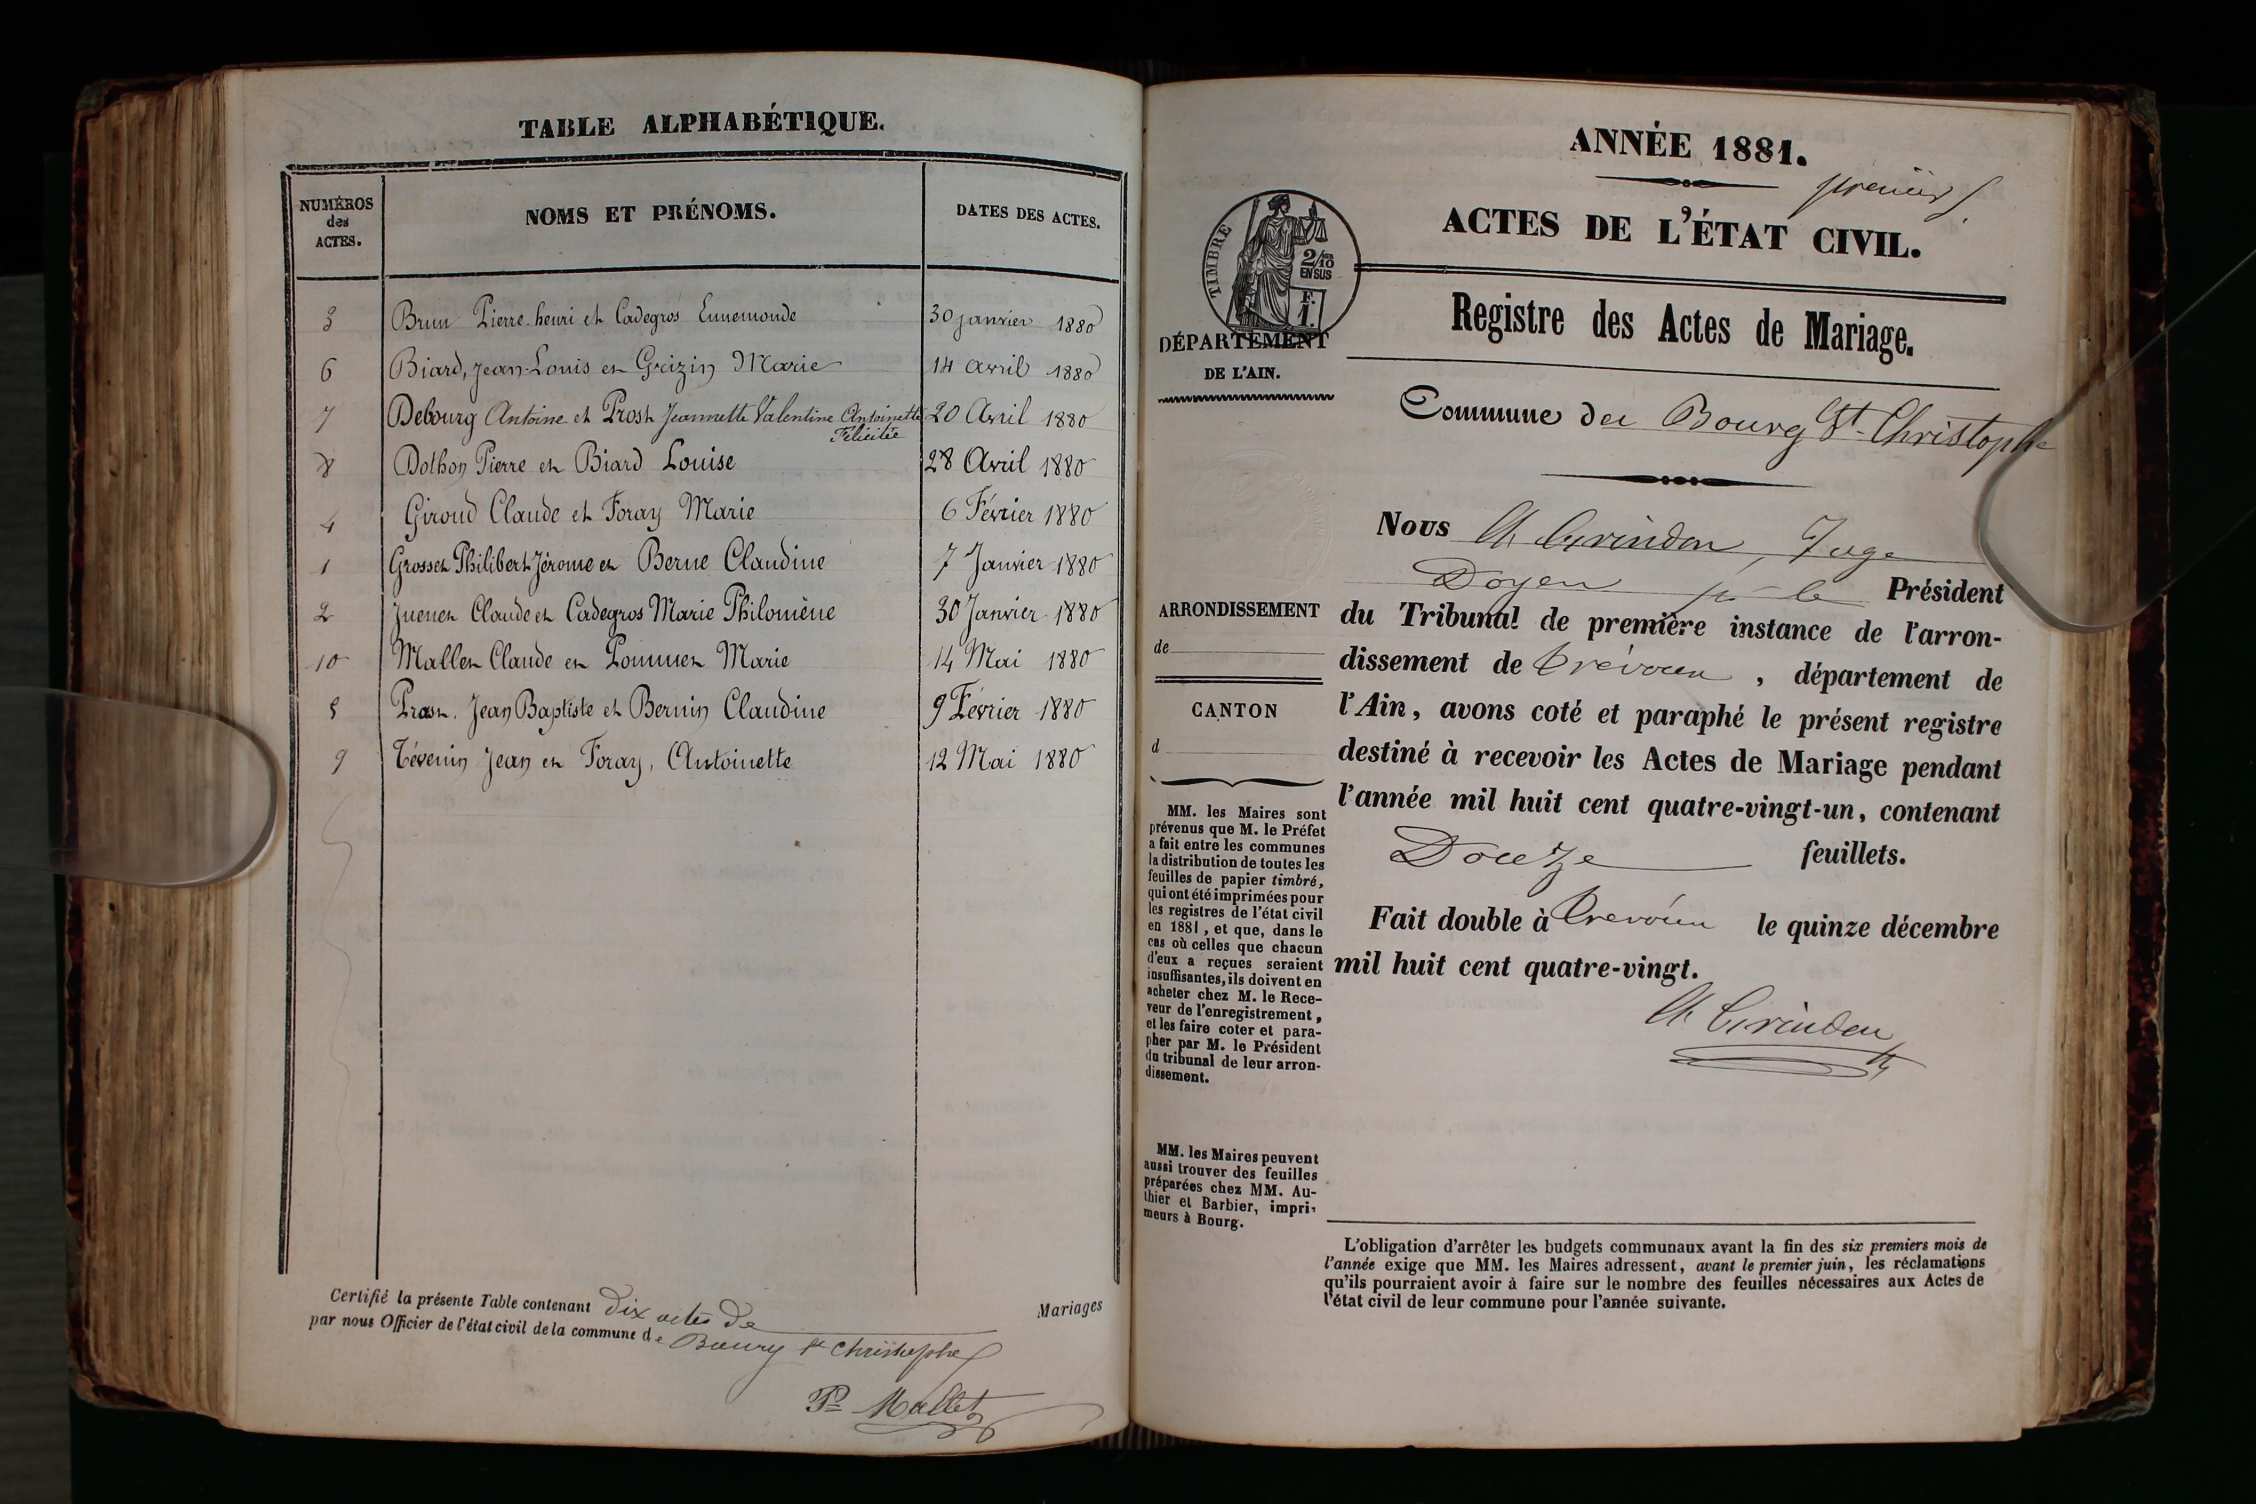 TABLE ALPHABÉTIQUE.
NUMÉROS des ACTES. NOMS ET PRÉNOMS. DATES DES ACTES.
3 Brun Pierre-henri et Cadegros Ennemonde 30 janvier 1880
6 Biard, Jean-Louis et Grizin Marie 14 avril 1880
7 Debourg Antoine et Prost Jeannette Valentine Antoinette 20 Avril 1880
Félicitée
8 Dothon Pierre et Biard Louise 28 Avril 1880
4 Giroud Claude et Foray Marie 6 Février 1880
1 Grosset Philibert Jérome et Berne Claudine 7 Janvier 1880
2 Juenet Claude et Cadegros Marie Philomène 30 Janvier 1880
10 Mallet Claude et Pommet Marie 14 Mai 1880
5 Prost. Jean Baptiste et Bernin Claudine 9 Février 1880
9 Tévenin Jean et Foray, Antoinette 12 Mai 1880
Certifié la présente Table contenant dix actes de Mariages
par nous Officier de l'état civil de la commune de Bourg St Christophe
Mallet
ANNÉE 1881.
premier
ACTES DE L'ÉTAT CIVIL.
TIMBRE
2/10 EN SUS
F. 1.
DÉPARTEMENT
DE L'AIN.
Registre des Actes de Mariage.
Commune de Bourg St-Christophe
Nous Juge
Doyen pr le Président
du Tribunal de première instance de l'arron-
dissement de Trévoux, département de
l'Ain, avons coté et paraphé le présent registre
destiné à recevoir les Actes de Mariage pendant
l'année mil huit cent quatre-vingt-un, contenant
Douze feuillets.
Fait double à Trévoux le quinze décembre
mil huit cent quatre-vingt.
ARRONDISSEMENT
de
CANTON
d
MM. les Maires sont
prévenus que M. le Préfet
a fait entre les communes
la distribution de toutes les
feuilles de papier timbré,
qui ont été imprimées pour
les registres de l'état civil
en 1881, et que, dans le
cas où celles que chacun
d'eux a reçues seraient
insuffisantes, ils doivent en
acheter chez M. le Rece-
veur de l'enregistrement,
et les faire coter et para-
pher par M. le Président
du tribunal de leur arron-
dissement.
MM. les Maires peuvent
aussi trouver des feuilles
préparées chez MM. Au-
thier et Barbier, impri-
meurs à Bourg.
L'obligation d'arrêter les budgets communaux avant la fin des six premiers mois de
l'année exige que MM. les Maires adressent, avant le premier juin, les réclamations
qu'ils pourraient avoir à faire sur le nombre des feuilles nécessaires aux Actes de
l'état civil de leur commune pour l'année suivante.